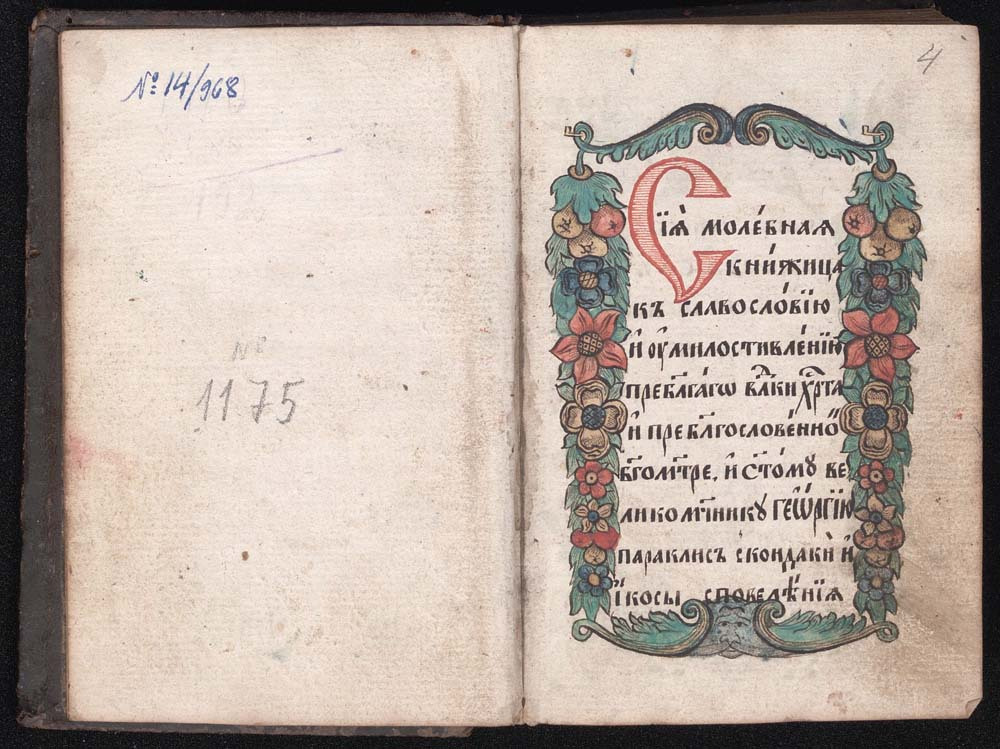 № 14/968
№
1175
4
Сїѧ̀ моле́бная
кни́жица
къ славосло́вїю
и҆ ᲂу҆милостивле́нїю
пребл҃га́гѡ вл҃ки хрⷭ҇та̀
и҆ пребл҃гослове́нной
бг҃омт҃ре, и҆ ст҃о́мꙋ ве
ликомч҃никꙋ гео́ргїю
параклисъ с кондаки̑ и҆
і҆косы споведѣ́нїя